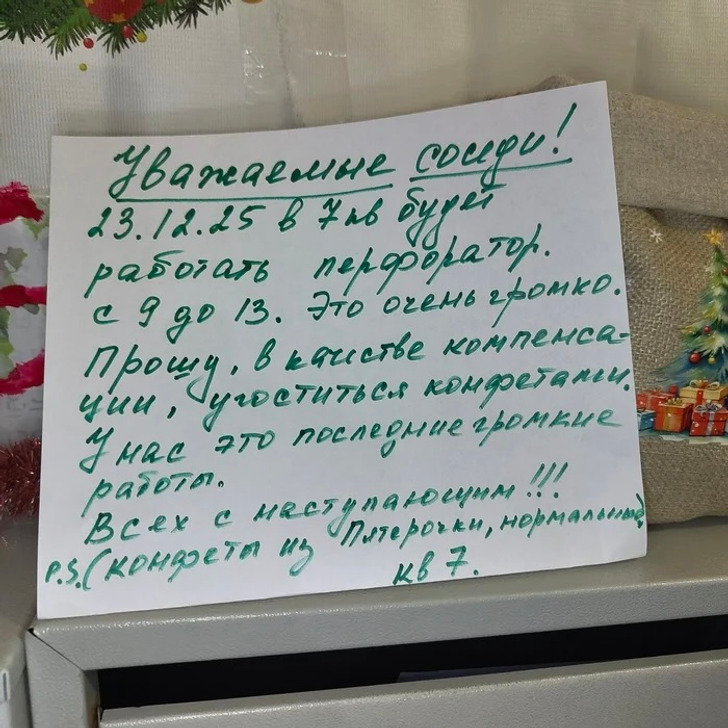 Уважаемые соседи!
23.12.25 в 7 кв будет
работать перфоратор.
с 9 до 13. Это очень громко.
Прошу, в качестве компенса-
ции, угоститься конфетами.
У нас это последние громкие
работы.
Всех с наступающим!!!
P.S. (конфеты из Пятерочки, нормальные)
кв 7.